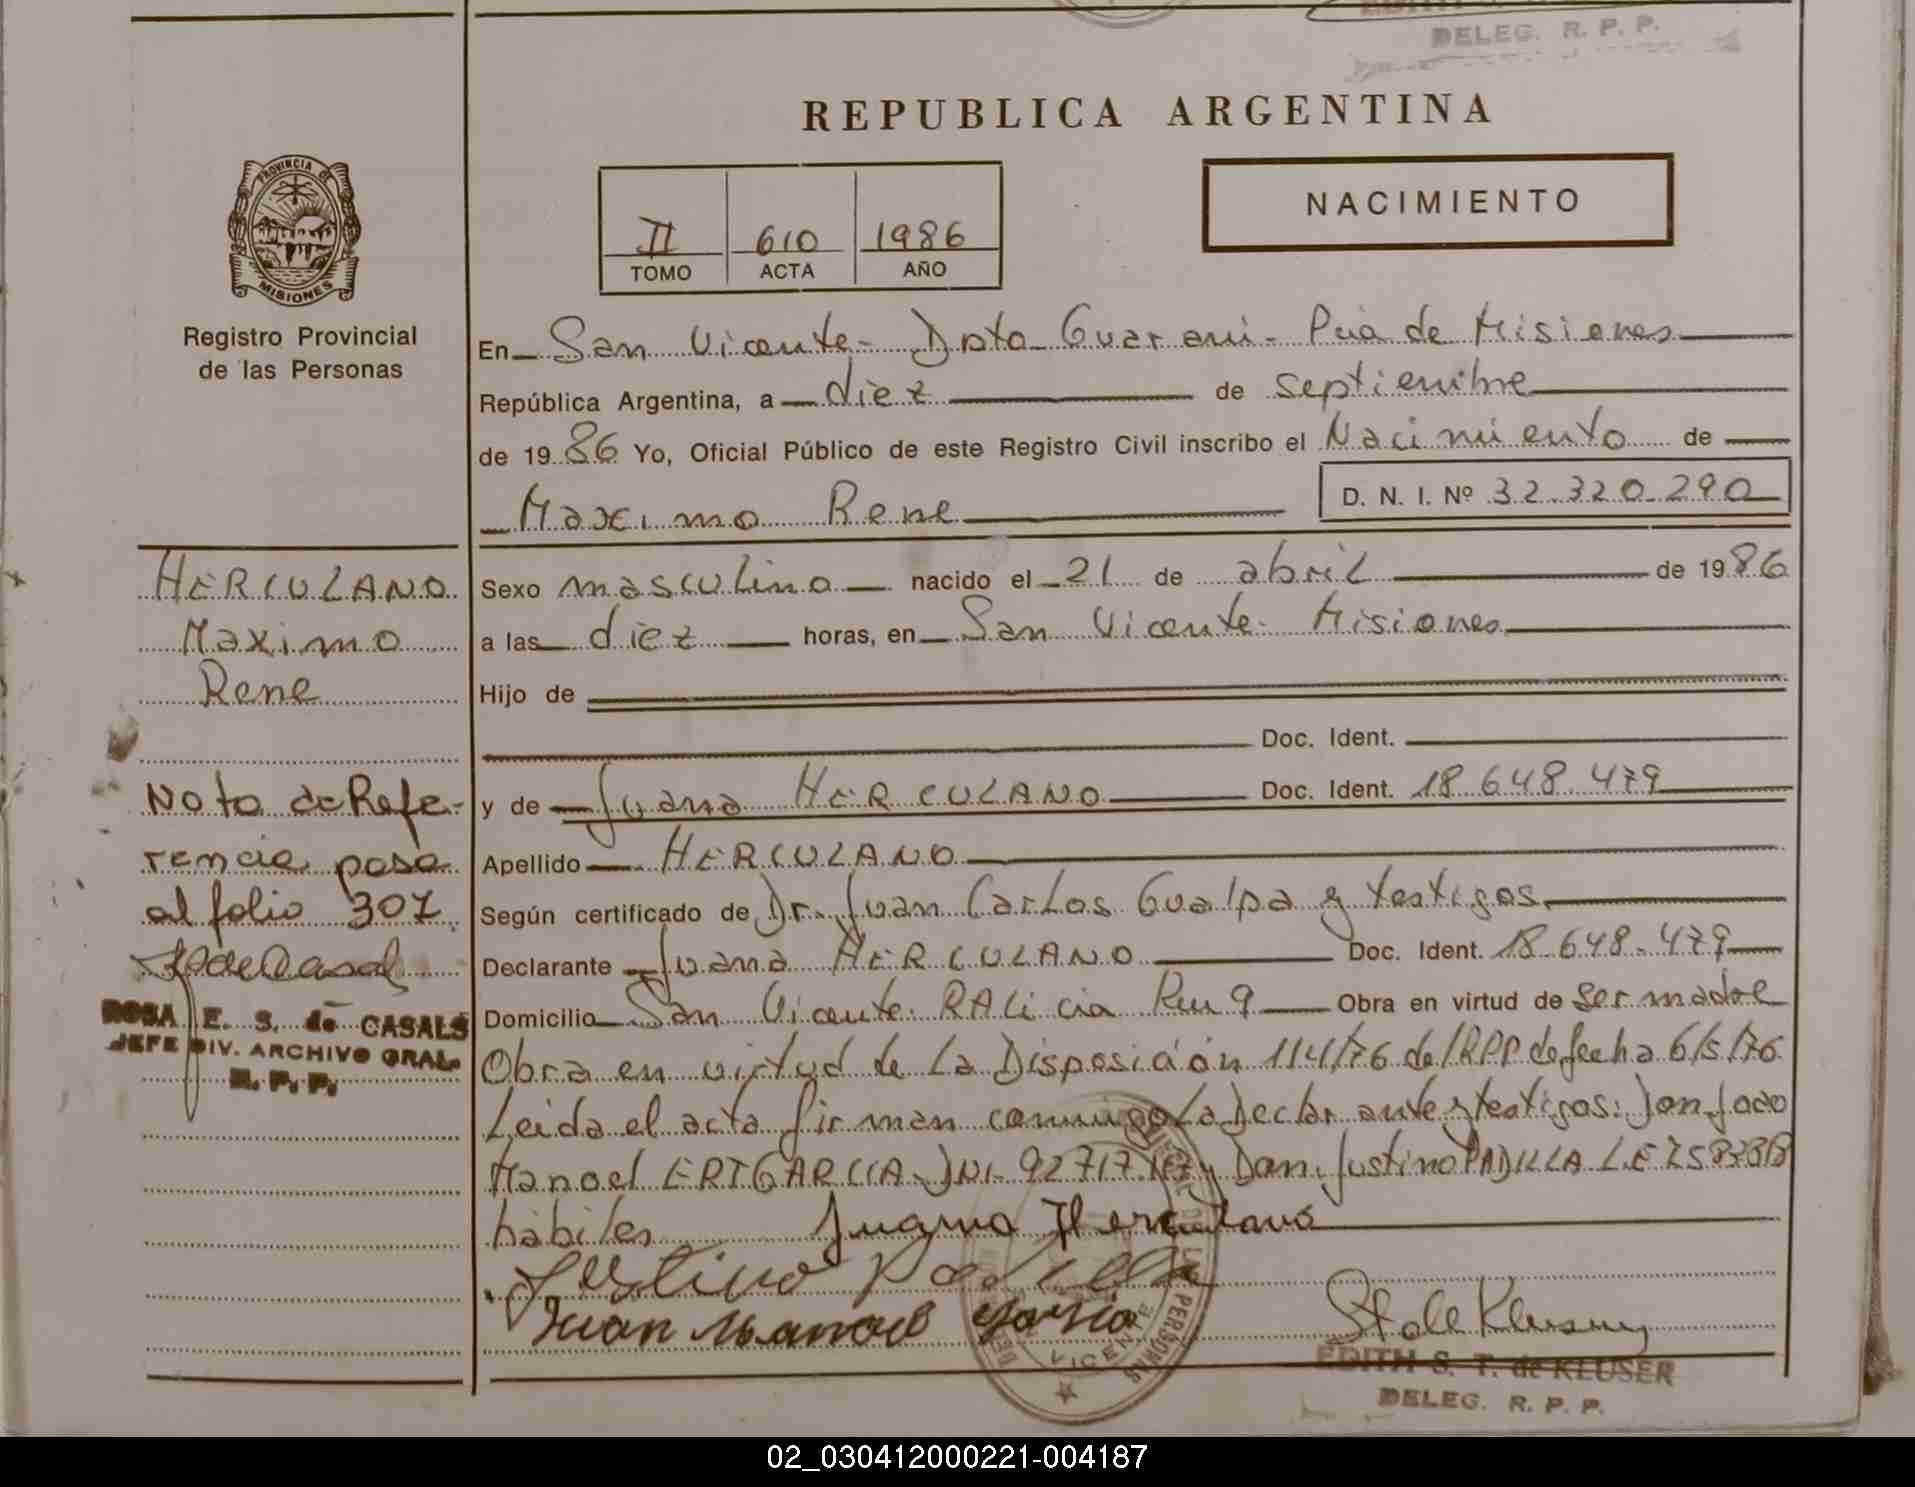 DELEG. R. P. P.
REPUBLICA ARGENTINA
PROVINCIA DE
MISIONES
Registro Provincial
de las Personas
II 610 1986
TOMO ACTA AÑO
NACIMIENTO
En San Vicente - Dpto Guarani - Pcia de Misiones
República Argentina, a diez de septiembre
de 1986 Yo, Oficial Público de este Registro Civil inscribo el Nacimiento de
Maximo Rene D. N. I. Nº 32.320.290
HERCULANO
Maximo
Rene
Sexo masculino nacido el 21 de abril de 1986
a las diez horas, en San Vicente - Misiones
Hijo de
Doc. Ident.
y de Juana HERCULANO Doc. Ident. 18.648.479
Apellido HERCULANO
Según certificado de Dr. Juan Carlos Gualpa y testigos
Declarante Juana HERCULANO Doc. Ident. 18.648.479
Domicilio San Vicente Obra en virtud de ser madre
Obra en virtud de La Disposición 114/76 de fecha 6/5/76
Leida el acta firman conmigo La Declarante y testigos: Don
Manoel GARCIA DNI. y Don Justino PADILLA L.E
hábiles Juana Herculano
Justino Padilla
Juan Manoel Garcia
Nota de Refe-
rencia pasa
al folio 307
ROSA E. S. de CASALS
JEFE DIV. ARCHIVO GRAL.
R. P. P.
VICENTE
EDITH S. T. de KLUSER
DELEG. R. P. P.
02_030412000221-004187